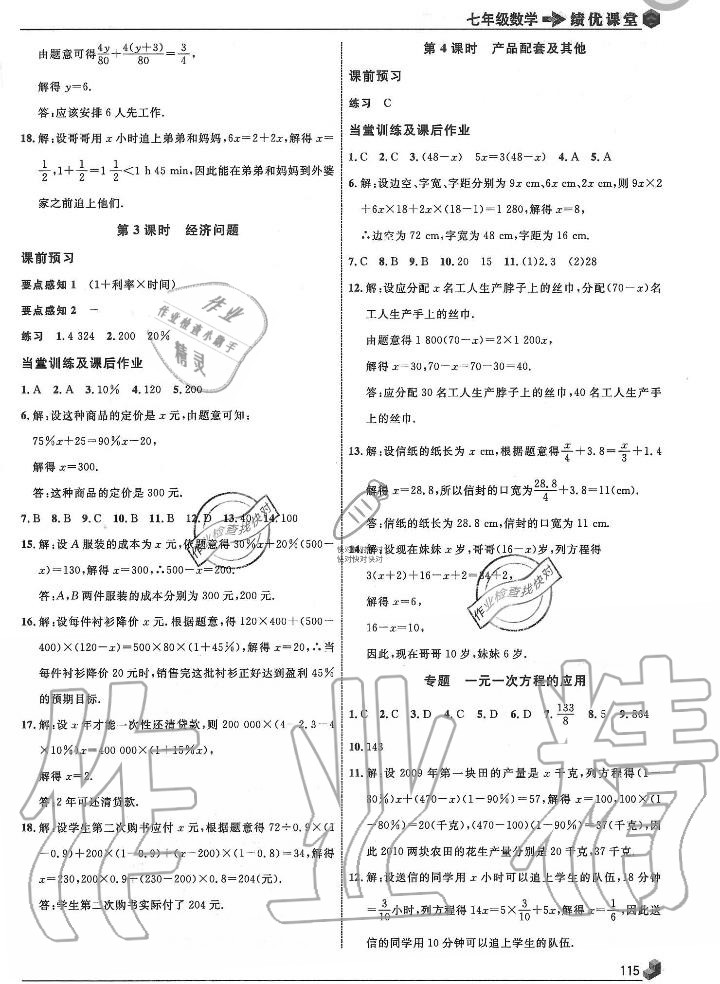 七年级数学 绩优课堂
由题意可得4y/80+4(y+3)/80=3/4,
解得 y=6.
答:应该安排 6 人先工作.
18.解:设哥哥用 x 小时追上弟弟和妈妈,6x=2+2x,解得 x=
1/2,1+1/2=1 1/2<1 h 45 min,因此能在弟弟和妈妈到外婆
家之前追上他们.
第 3 课时 经济问题
课前预习
要点感知 1 (1+利率×时间)
要点感知 2 −
练习 1.4 324 2.200 20%
当堂训练及课后作业
1.A 2.A 3.10% 4.120 5.200
6.解:设这种商品的定价是 x 元,由题意可知:
75%x+25=90%x−20,
解得 x=300.
答:这种商品的定价是 300 元.
7.B 8.B 9.C 10.B 11.B 12.D 13.40 14.100
15.解:设 A 服装的成本为 x 元,依题意得 30%x+20%(500−
x)=130,解得 x=300,∴500−x=200.
答:A,B 两件服装的成本分别为 300 元,200 元.
16.解:设每件衬衫降价 x 元.根据题意,得 120×400+(500−
400)×(120−x)=500×80×(1+45%),解得 x=20,∴当
每件衬衫降价 20 元时,销售完这批衬衫正好达到盈利 45%
的预期目标.
17.解:设 x 年才能一次性还清贷款,则 200 000×(4−2.3−4
×10%)x=400 000×(1+15%x),
解得 x=2.
答:2 年可还清贷款.
18.解:设学生第二次购书应付 x 元,根据题意得 72÷0.9×(1
−0.9)+200×(1−0.9)+(x−200)×(1−0.8)=34,解得
x=230,200×0.9+(230−200)×0.8=204(元).
答:学生第二次购书实际付了 204 元.
第 4 课时 产品配套及其他
课前预习
练习 C
当堂训练及课后作业
1.C 2.C 3.(48−x) 5x=3(48−x) 4.A 5.A
6.解:设边空、字宽、字距分别为 9x cm、6x cm、2x cm,则 9x×2
+6x×18+2x×(18−1)=1 280,解得 x=8,
∴边空为 72 cm,字宽为 48 cm,字距为 16 cm.
7.C 8.B 9.B 10.20 15 11.(1)2.3 (2)28
12.解:设应分配 x 名工人生产脖子上的丝巾,分配(70−x)名
工人生产手上的丝巾.
由题意得 1 800(70−x)=2×1 200x,
解得 x=30,70−x=70−30=40.
答:应分配 30 名工人生产脖子上的丝巾,40 名工人生产手
上的丝巾.
13.解:设信纸的纸长为 x cm,根据题意得x/4+3.8=x/3+1.4
解得 x=28.8,所以信封的口宽为28.8/4+3.8=11(cm).
答:信纸的纸长为 28.8 cm,信封的口宽为 11 cm.
14.解:设现在妹妹 x 岁,哥哥(16−x)岁,列方程得
3(x+2)+16−x+2=34+2,
解得 x=6,
16−x=10,
因此,现在哥哥 10 岁,妹妹 6 岁.
专题 一元一次方程的应用
1.C 2.C 3.D 4.C 5.D 6.D 7.133/8 8.5 9.864
10.143
11.解:设 2009 年第一块田的产量是 x 千克,列方程得(1−
80%)x+(470−x)(1−90%)=57,解得 x=100,100×(1
−80%)=20(千克),(470−100)(1−90%)=37(千克),因
此 2010 两块农田的花生产量分别是 20 千克,37 千克.
12.解:设送信的同学用 x 小时可以追上学生的队伍,18 分钟
=3/10小时,列方程得 14x=5×3/10+5x,解得 x=1/6,因此送
信的同学用 10 分钟可以追上学生的队伍.
115
作业
作业检查小助手
精灵
作业检查找快对
快对快对快对
快对快对快对
作业检查找快对
作业精